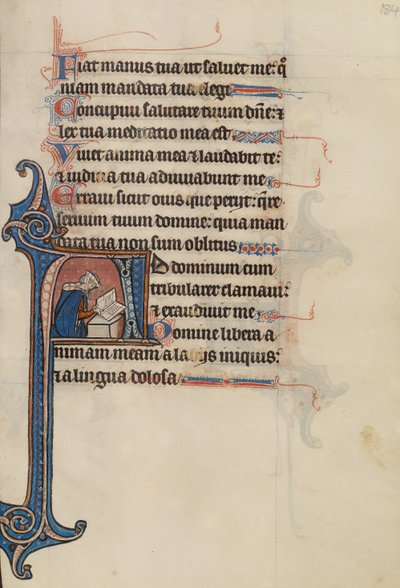 184
Fiat manus tua ut saluet me: qm̄
niam mandata tua elegi
Concupiui salutare tuum dn̄e: ⁊
lex tua meditatio mea est
Viuet anima mea ⁊ laudabit te:
⁊ iudicia tua adiuuabunt me
Erraui sicut ouis que periit: q̄re
seruum tuum domine: quia man
data tua non sum oblitus
Ad dominum cum
tribularer clamaui:
⁊ exaudiuit me
Domine libera a
nimam meam a labijs iniquis:
⁊ a lingua dolosa